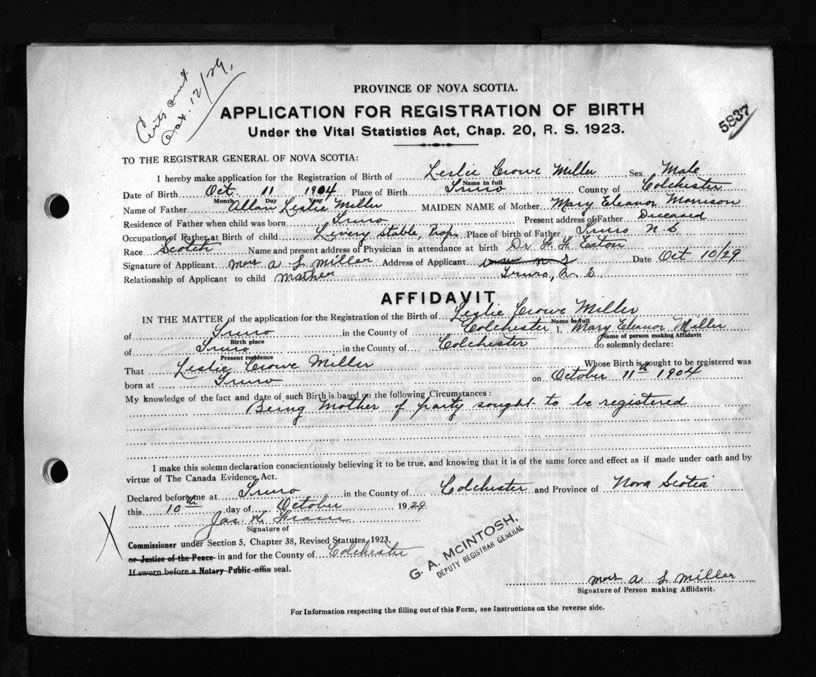 Certs sent
Oct. 12/29.
PROVINCE OF NOVA SCOTIA.
APPLICATION FOR REGISTRATION OF BIRTH
5837
Under the Vital Statistics Act, Chap. 20, R. S. 1923.
TO THE REGISTRAR GENERAL OF NOVA SCOTIA:
I hereby make application for the Registration of Birth of Leslie Crowe Miller Sex Male
Name in full
Date of Birth Oct 11 1904 Place of Birth Truro County of Colchester
Month Day Year
Name of Father Allan Leslie Miller MAIDEN NAME of Mother Mary Eleanor Morrison
Residence of Father when child was born Truro Present address of Father Deceased
Occupation of Father at Birth of child Livery Stable Prop. Place of birth of Father Truro N S
Race Scotch Name and present address of Physician in attendance at birth Dr
Signature of Applicant Mrs A L Miller Address of Applicant Date Oct 10/29
Relationship of Applicant to child Mother Truro, N. S
AFFIDAVIT
IN THE MATTER of the application for the Registration of Birth of Leslie Crowe Miller
Name in full
of Truro in the County of Colchester I, Mary Eleanor Miller
Birth place Name of person making Affidavit
of Truro in the County of Colchester do solemnly declare:
Present residence
That Leslie Crowe Miller Whose Birth is sought to be registered was
born at Truro on October 11th 1904
My knowledge of the fact and date of such Birth is based on the following Circumstances:
Being Mother of party sought to be registered
I make this solemn declaration conscientiously believing it to be true, and knowing that it is of the same force and effect as if made under oath and by
virtue of The Canada Evidence Act.
Declared before me at Truro in the County of Colchester and Province of Nova Scotia
this 10th day of October 1929
Jas
Signature of
Commissioner under Section 5, Chapter 38, Revised Statutes, 1923,
or Justice of the Peace in and for the County of Colchester
If sworn before a Notary Public affix seal.
G. A. McINTOSH,
DEPUTY REGISTRAR GENERAL
Mrs A L Miller
Signature of Person making Affidavit.
For Information respecting the filling out of this Form, see Instructions on the reverse side.